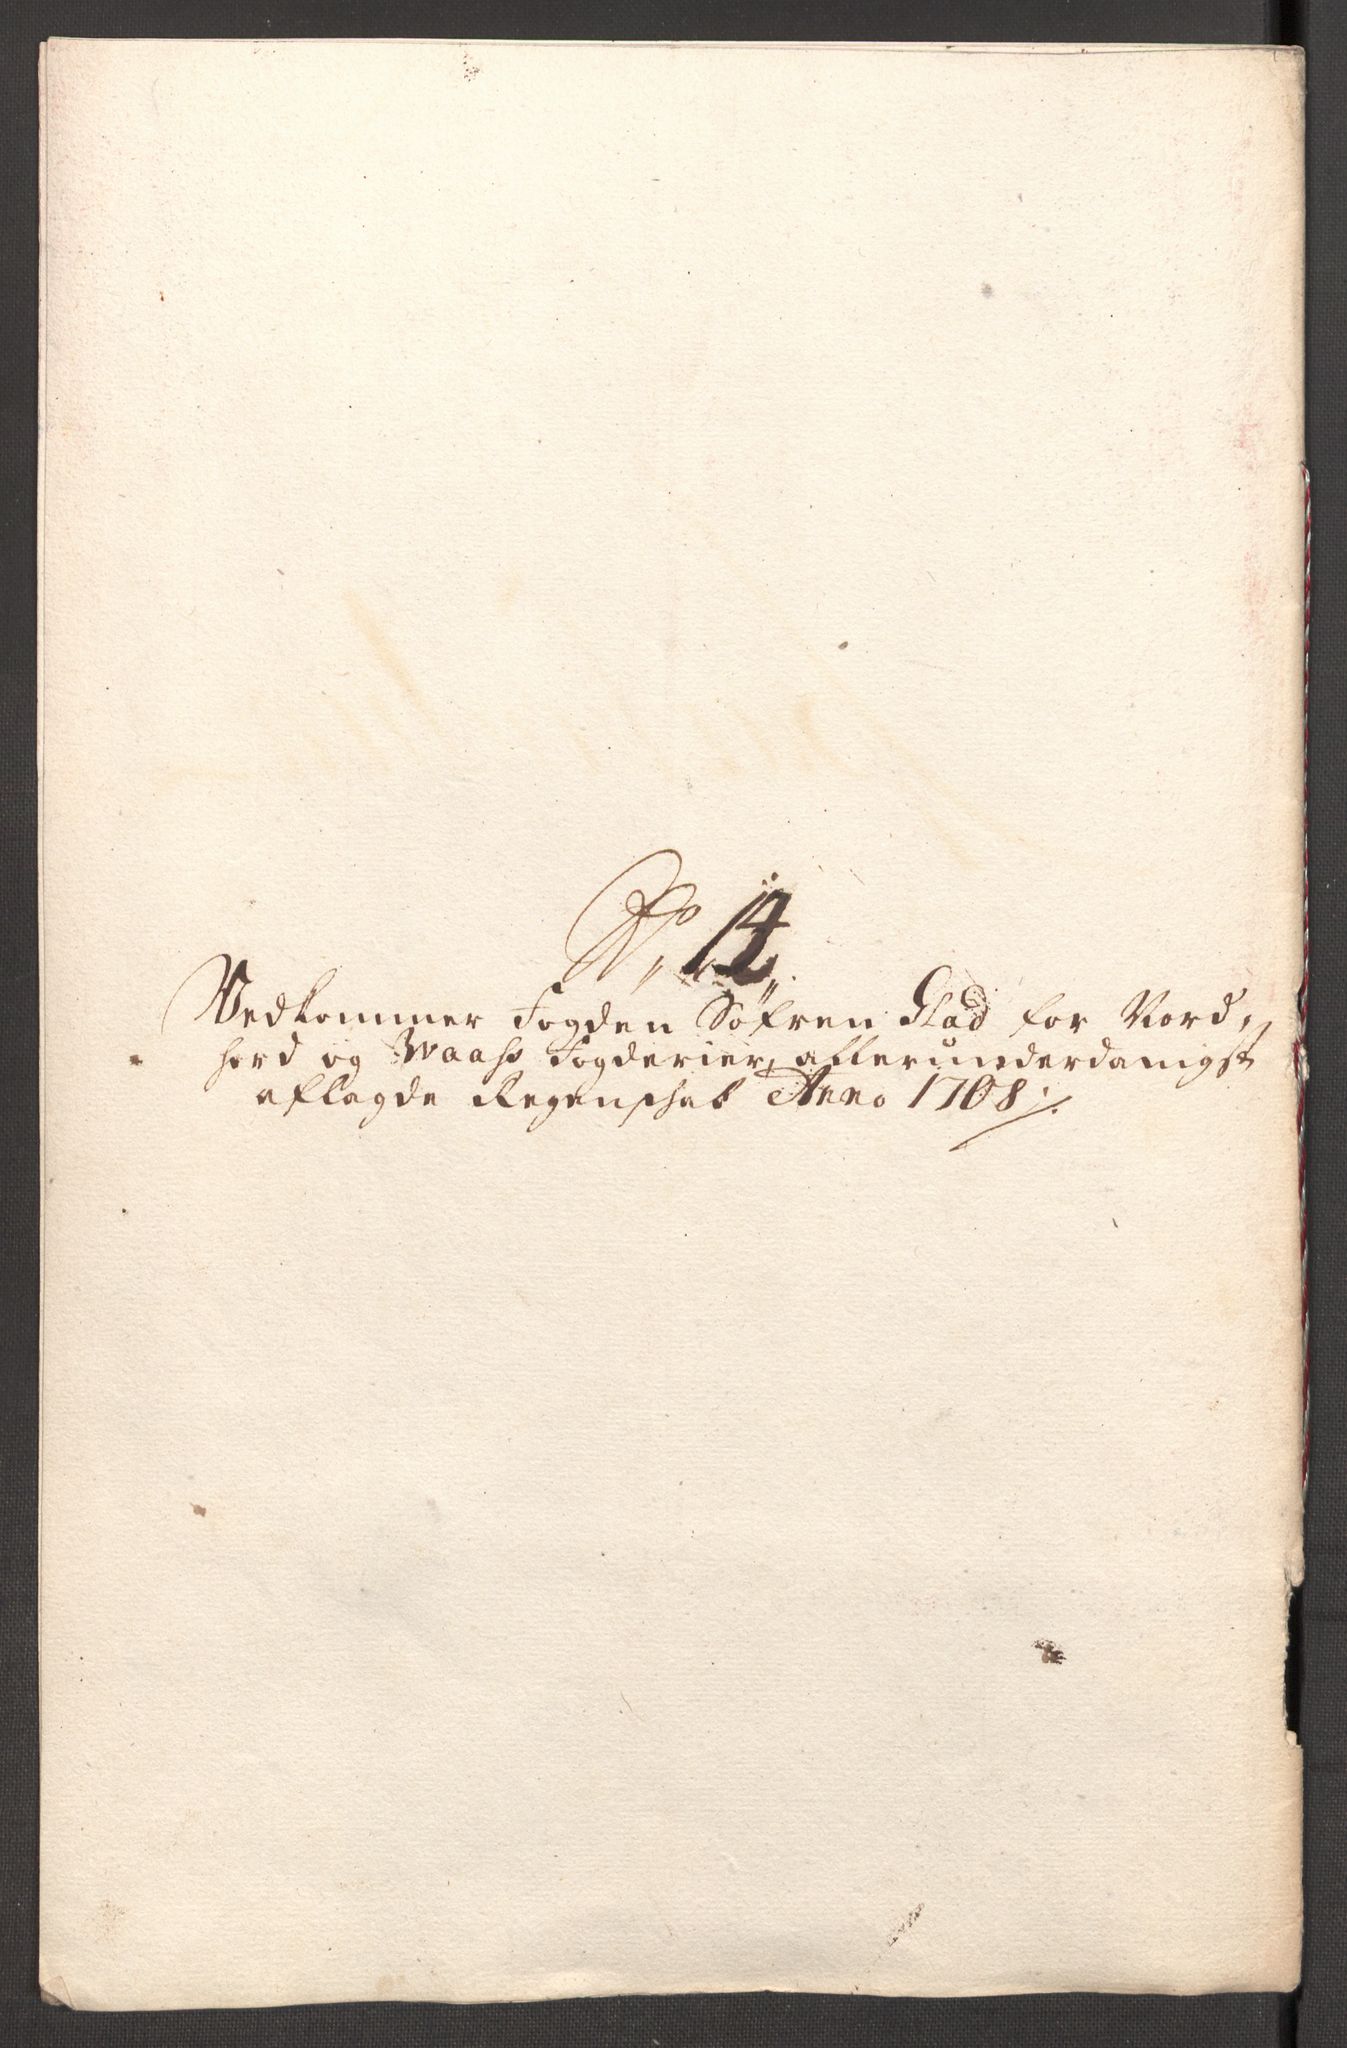 No. 14.
Vedkommer Fogden Søfren Glad for Nord,
hord og Waass Fogderier, allerunderdanigst
aflagde Regenschab Anno 1708 ./.